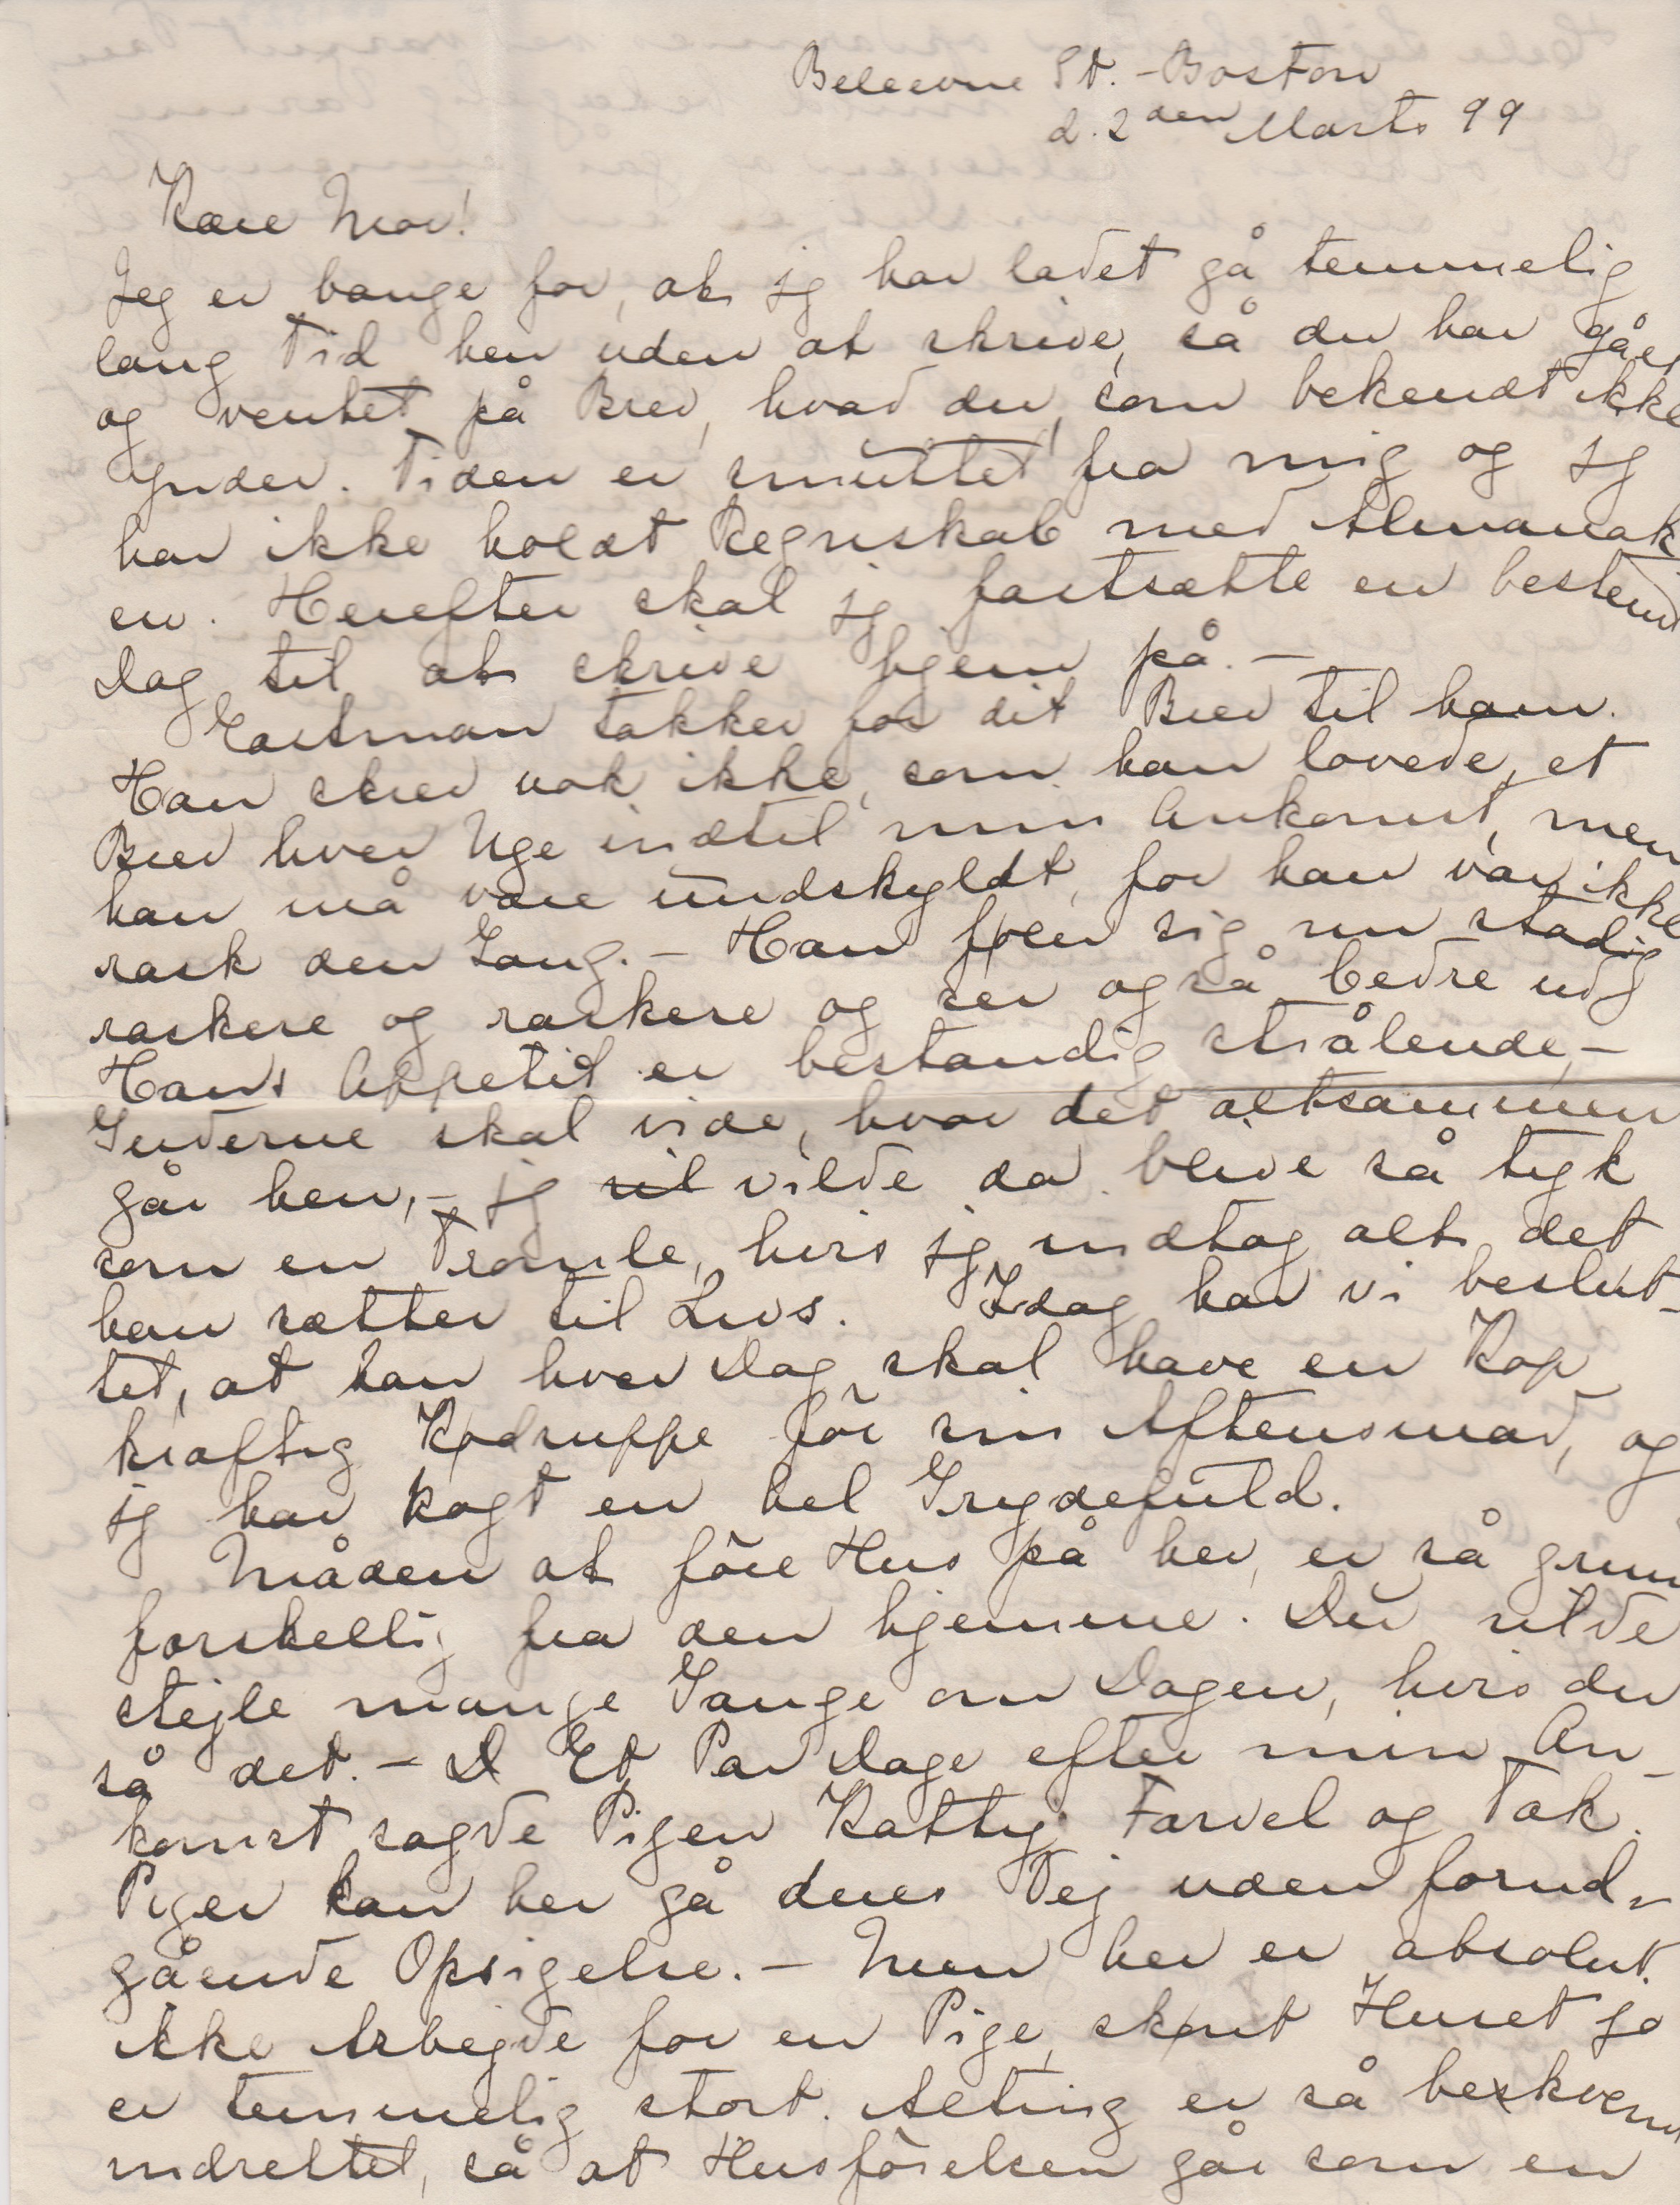 Bellevue St. - Boston
d. 2den Marts 99
Kære Mor!
Jeg er bange for, at jeg har ladet gå temmelig
lang Tid hen uden at skrive, så du har gået
og ventet på Brev, hvad du, som bekendt ikke
ynder. Tiden er smuttet fra mig og jeg
har ikke holdt Regnskab med Almanak
en. Herefter skal jeg fastsætte en bestemt
Dag til at skrive hjem på. -
Eastman takker for dit Brev til ham.
Han skrev nok ikke, som han lovede, et
Brev hver Uge indtil min Ankomst, men
han må være undskyldt, for han var ikke
rask den Gang. - Han føler sig nu stadig
raskere og raskere og ser også bedre ud.
Hans Appetit er bestandig strålende, -
Guderne skal vide, hvor det altsammen
går hen, - jeg vil vilde da blive så tyk
som en Tromle, hvis jeg indtog alt det
han sætter til Livs. Idag har vi beslut-
tet, at han hver Dag skal have en Kop
kraftig Kødsuppe før sin Aftensmad, og
jeg har kogt en hel Grydefuld.
Måden at føre Hus på her, er så grund
forskellig fra den hjemme. Du vilde
stejle mange Gange om Dagen, hvis du
så det. - D Et Par Dage efter min An-
komst sagde Pigen Katty Farvel og Tak.
Piger kan her gå deres Vej uden forud-
gående Opsigelse. - Men her er absolut
ikke Arbejde for en Pige, skønt Huset jo
er temmelig stort. Alting er så beskvemt
indrettet, så at Husførelsen går som en